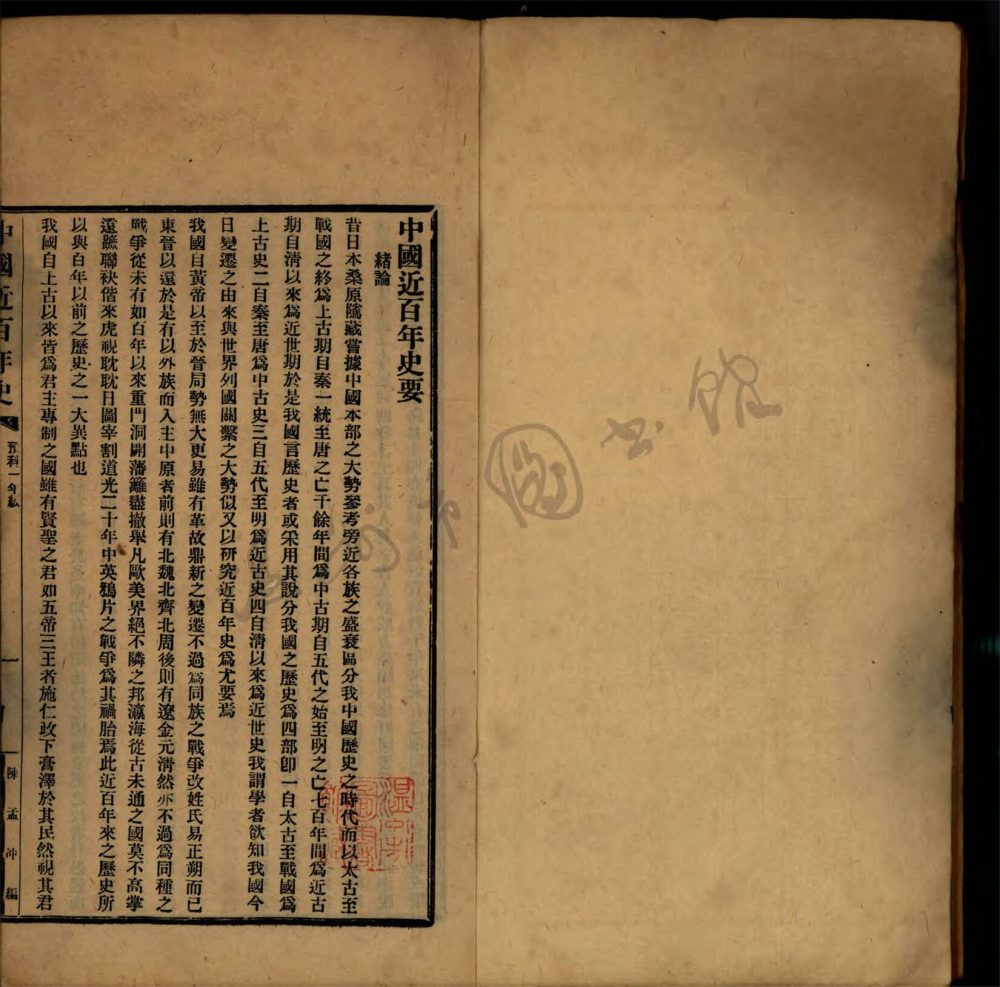 中國近百年史要
緒論
昔日本桑原隲藏嘗據中國本部之大勢參考旁近各族之盛衰區分我中國歷史之時代而以太古至
戰國之終爲上古期自秦一統至唐之亡千餘年間爲中古期自五代之始至明之亡七百年間爲近古
期自清以來爲近世期於是我國言歷史者或采用其說分我國之歷史爲四部卽一自太古至戰國爲
上古史二自秦至唐爲中古史三自五代至明爲近古史四自清以來爲近世史我謂學者欲知我國今
日變遷之由來與世界列國關繫之大勢似又以研究近百年史爲尤要焉
我國自黃帝以至於晉局勢無大更易雖有革故鼎新之變遷不過爲同族之戰爭改姓氏易正朔而已
東晉以還於是有以外族而入主中原者前則有北魏北齊北周後則有遼金元清然亦不過爲同種之
戰爭從未有如百年以來重門洞闢藩籬盡撤舉凡歐美界絕不隣之邦瀛海從古未通之國莫不高掌
遠蹠聯袂偕來虎視耽耽日圖宰割道光二十年中英鴉片之戰爭爲其禍胎焉此近百年來之歷史所
以與百年以前之歷史之一大異點也
我國自上古以來皆爲君主專制之國雖有賢聖之君如五帝三王者施仁政下膏澤於其民然視其君
中國近百年史
預科一
一
陳孟冲編
圖書館